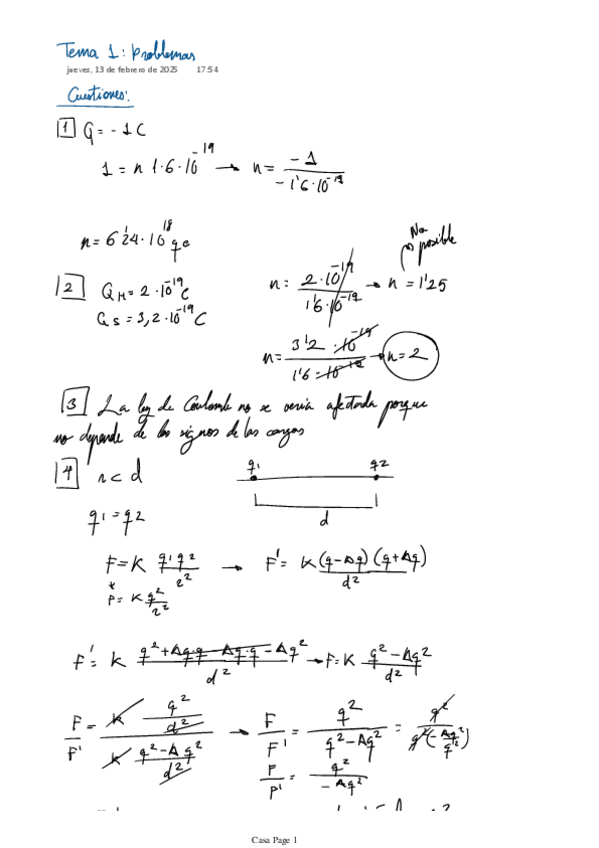 Tema 1: Problemas
jueves, 13 de febrero de 2025 17:54
Cuestiones:
1 Q = - 1 C
1 = n 1·6·10^-19 → n = -1 / -1'6·10^-19
n = 6'24·10^18 qe
No posible
2 QM = 2·10^-19 C
n: 2·10^-19 / 1'6·10^-19 → n = 1'25
QS = 3,2·10^-19 C
n = 3'2·10^-19 / 1'6·10^-19 → n = 2
3 La ley de Coulomb no se vería afectada porque
no depende de los signos de las cargas
4 r < d
q1 q2
d
q1 = q2
F = K q1q2 / r^2 → F' = K (q-Δq)(q+Δq) / d^2
F = K q^2 / r^2
F' = K q^2+Δq·q-Δq·q-Δq^2 / d^2 → F = K q^2-Δq^2 / d^2
F / F' = K q^2 / d^2 / K q^2-Δq^2 / d^2 → F / F' = q^2 / q^2-Δq^2 = q^2 / q^2(-Δq^2 / q^2)
F / F' = q^2 / -Δq^2
Casa Page 1